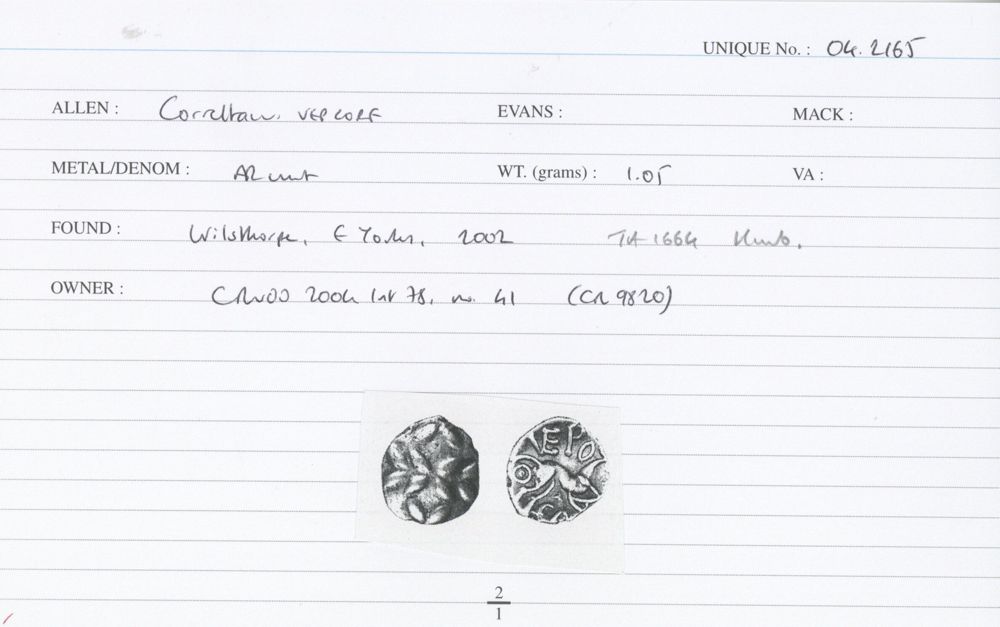 UNIQUE No. : 04.2165
ALLEN : Corieltauv. VEP CORF EVANS : MACK :
METAL/DENOM : AR unit WT. (grams) : 1.05 VA :
FOUND : Wilsthorpe, E Yorks, 2002 TA 1664 Humb.
OWNER : 2004 list 78, no. 41 (CR 9820)
EPO
2
1